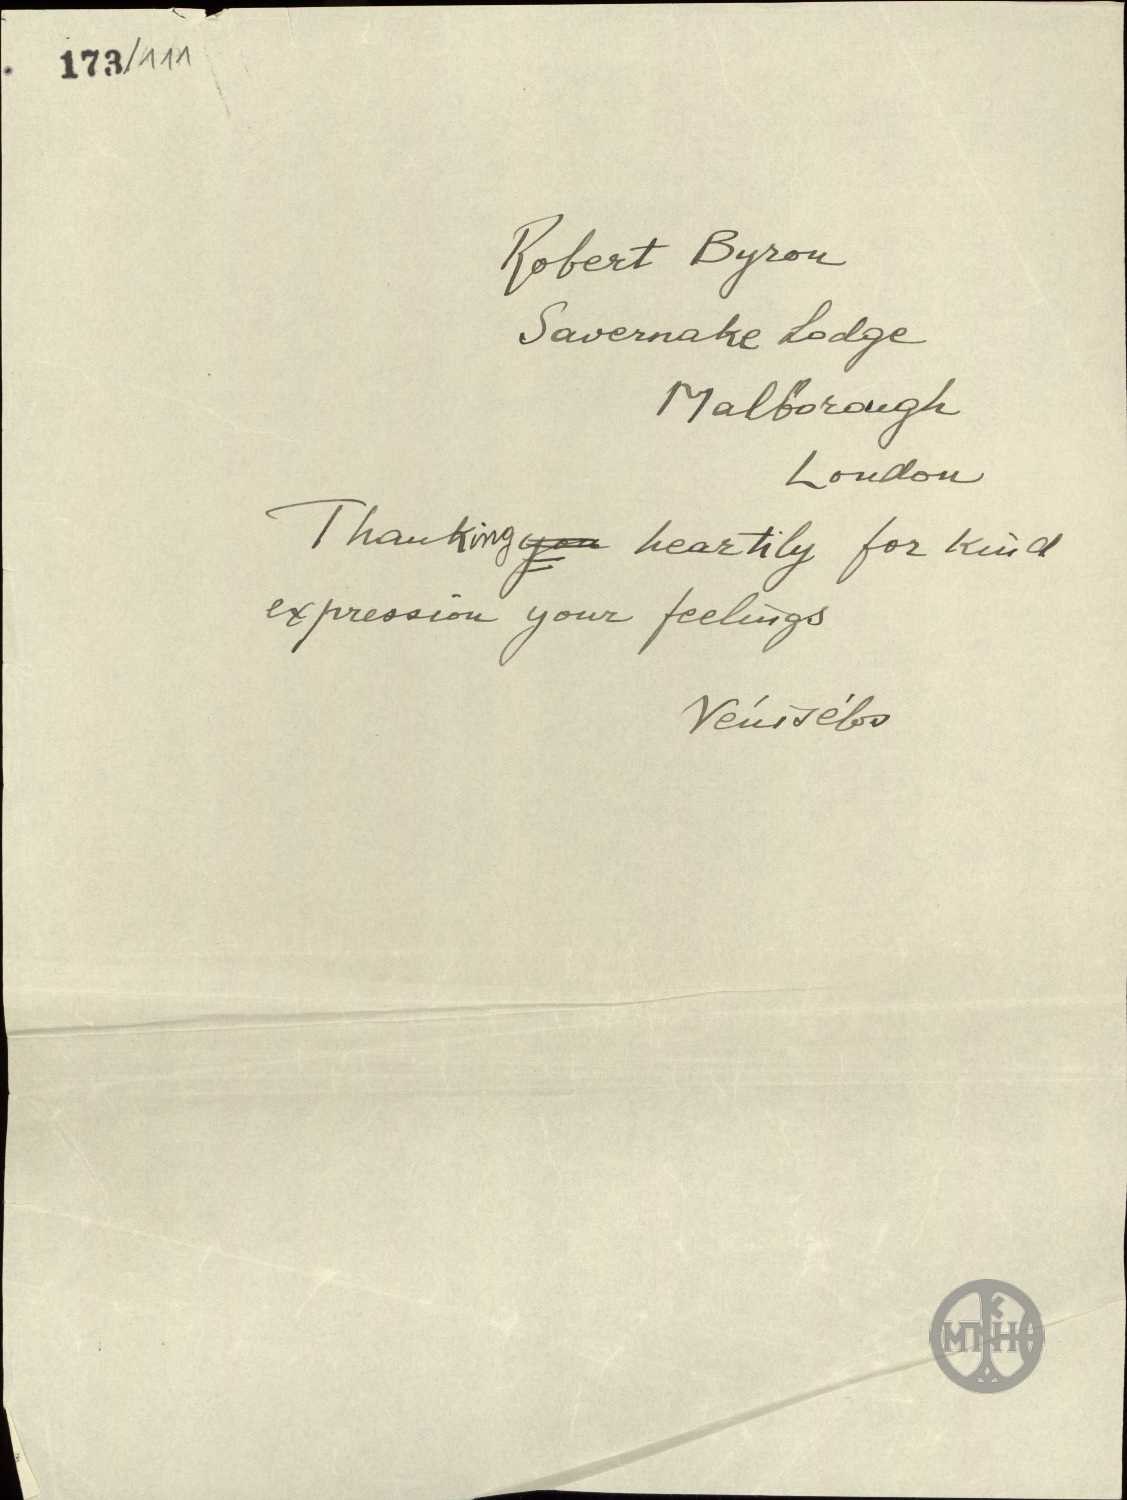 173/111
Robert Byron
Savernake Lodge
Malborough
London
Thanking you heartily for kind
expression your feelings
Vénisélos